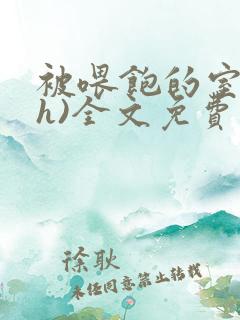 被喂饱的室
h)全文免費
徐耿
未经同意禁止转载